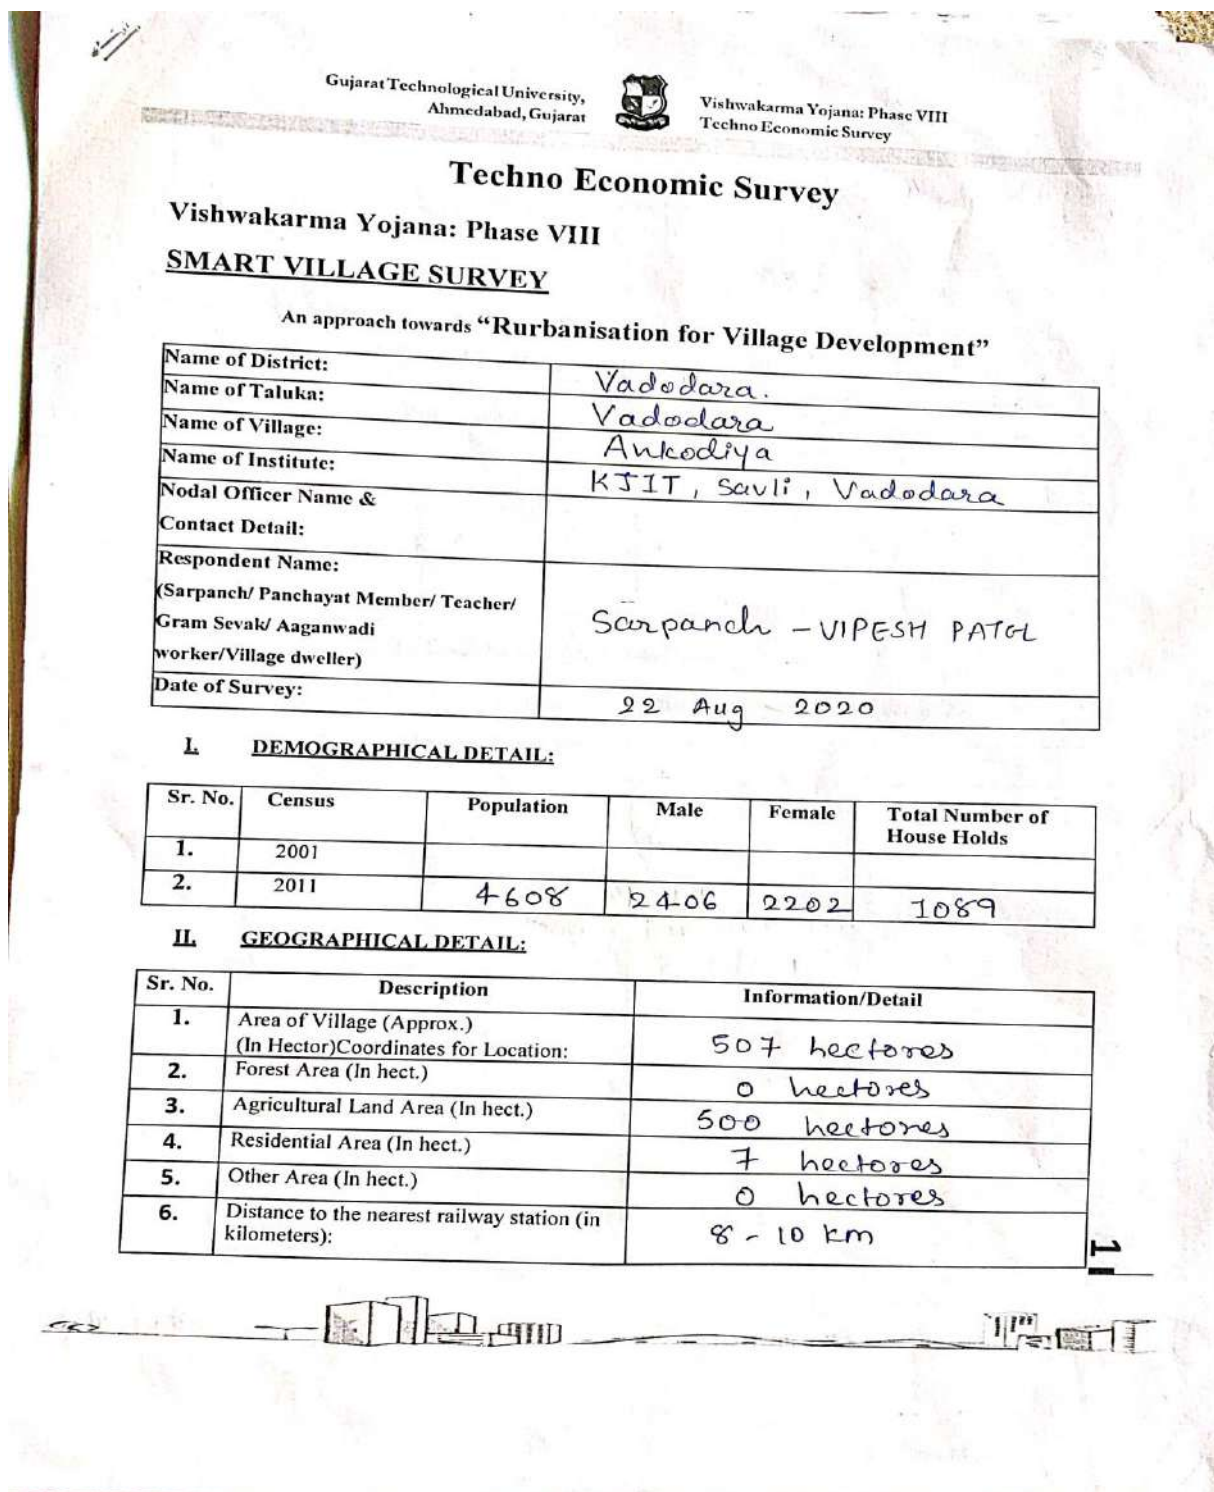 Gujarat Technological University,
Ahmedabad, Gujarat
Vishwakarma Yojana: Phase VIII
Techno Economic Survey
Techno Economic Survey
Vishwakarma Yojana: Phase VIII
SMART VILLAGE SURVEY
An approach towards “Rurbanisation for Village Development”
Name of District: Vadodara.
Name of Taluka: Vadodara
Name of Village: Ankodiya
Name of Institute: KJIT, Savli, Vadodara
Nodal Officer Name &
Contact Detail:
Respondent Name:
(Sarpanch/ Panchayat Member/ Teacher/
Gram Sevak/ Aaganwadi
worker/Village dweller)
Sarpanch - VIPESH PATEL
Date of Survey: 22 Aug 2020
I. DEMOGRAPHICAL DETAIL:
Sr. No. Census Population Male Female Total Number of
House Holds
1. 2001
2. 2011 4608 2406 2202 1089
II. GEOGRAPHICAL DETAIL:
Sr. No. Description Information/Detail
1. Area of Village (Approx.)
(In Hector)Coordinates for Location: 507 hectores
2. Forest Area (In hect.) 0 hectores
3. Agricultural Land Area (In hect.) 500 hectores
4. Residential Area (In hect.) 7 hectores
5. Other Area (In hect.) 0 hectores
6. Distance to the nearest railway station (in
kilometers): 8 - 10 km
1